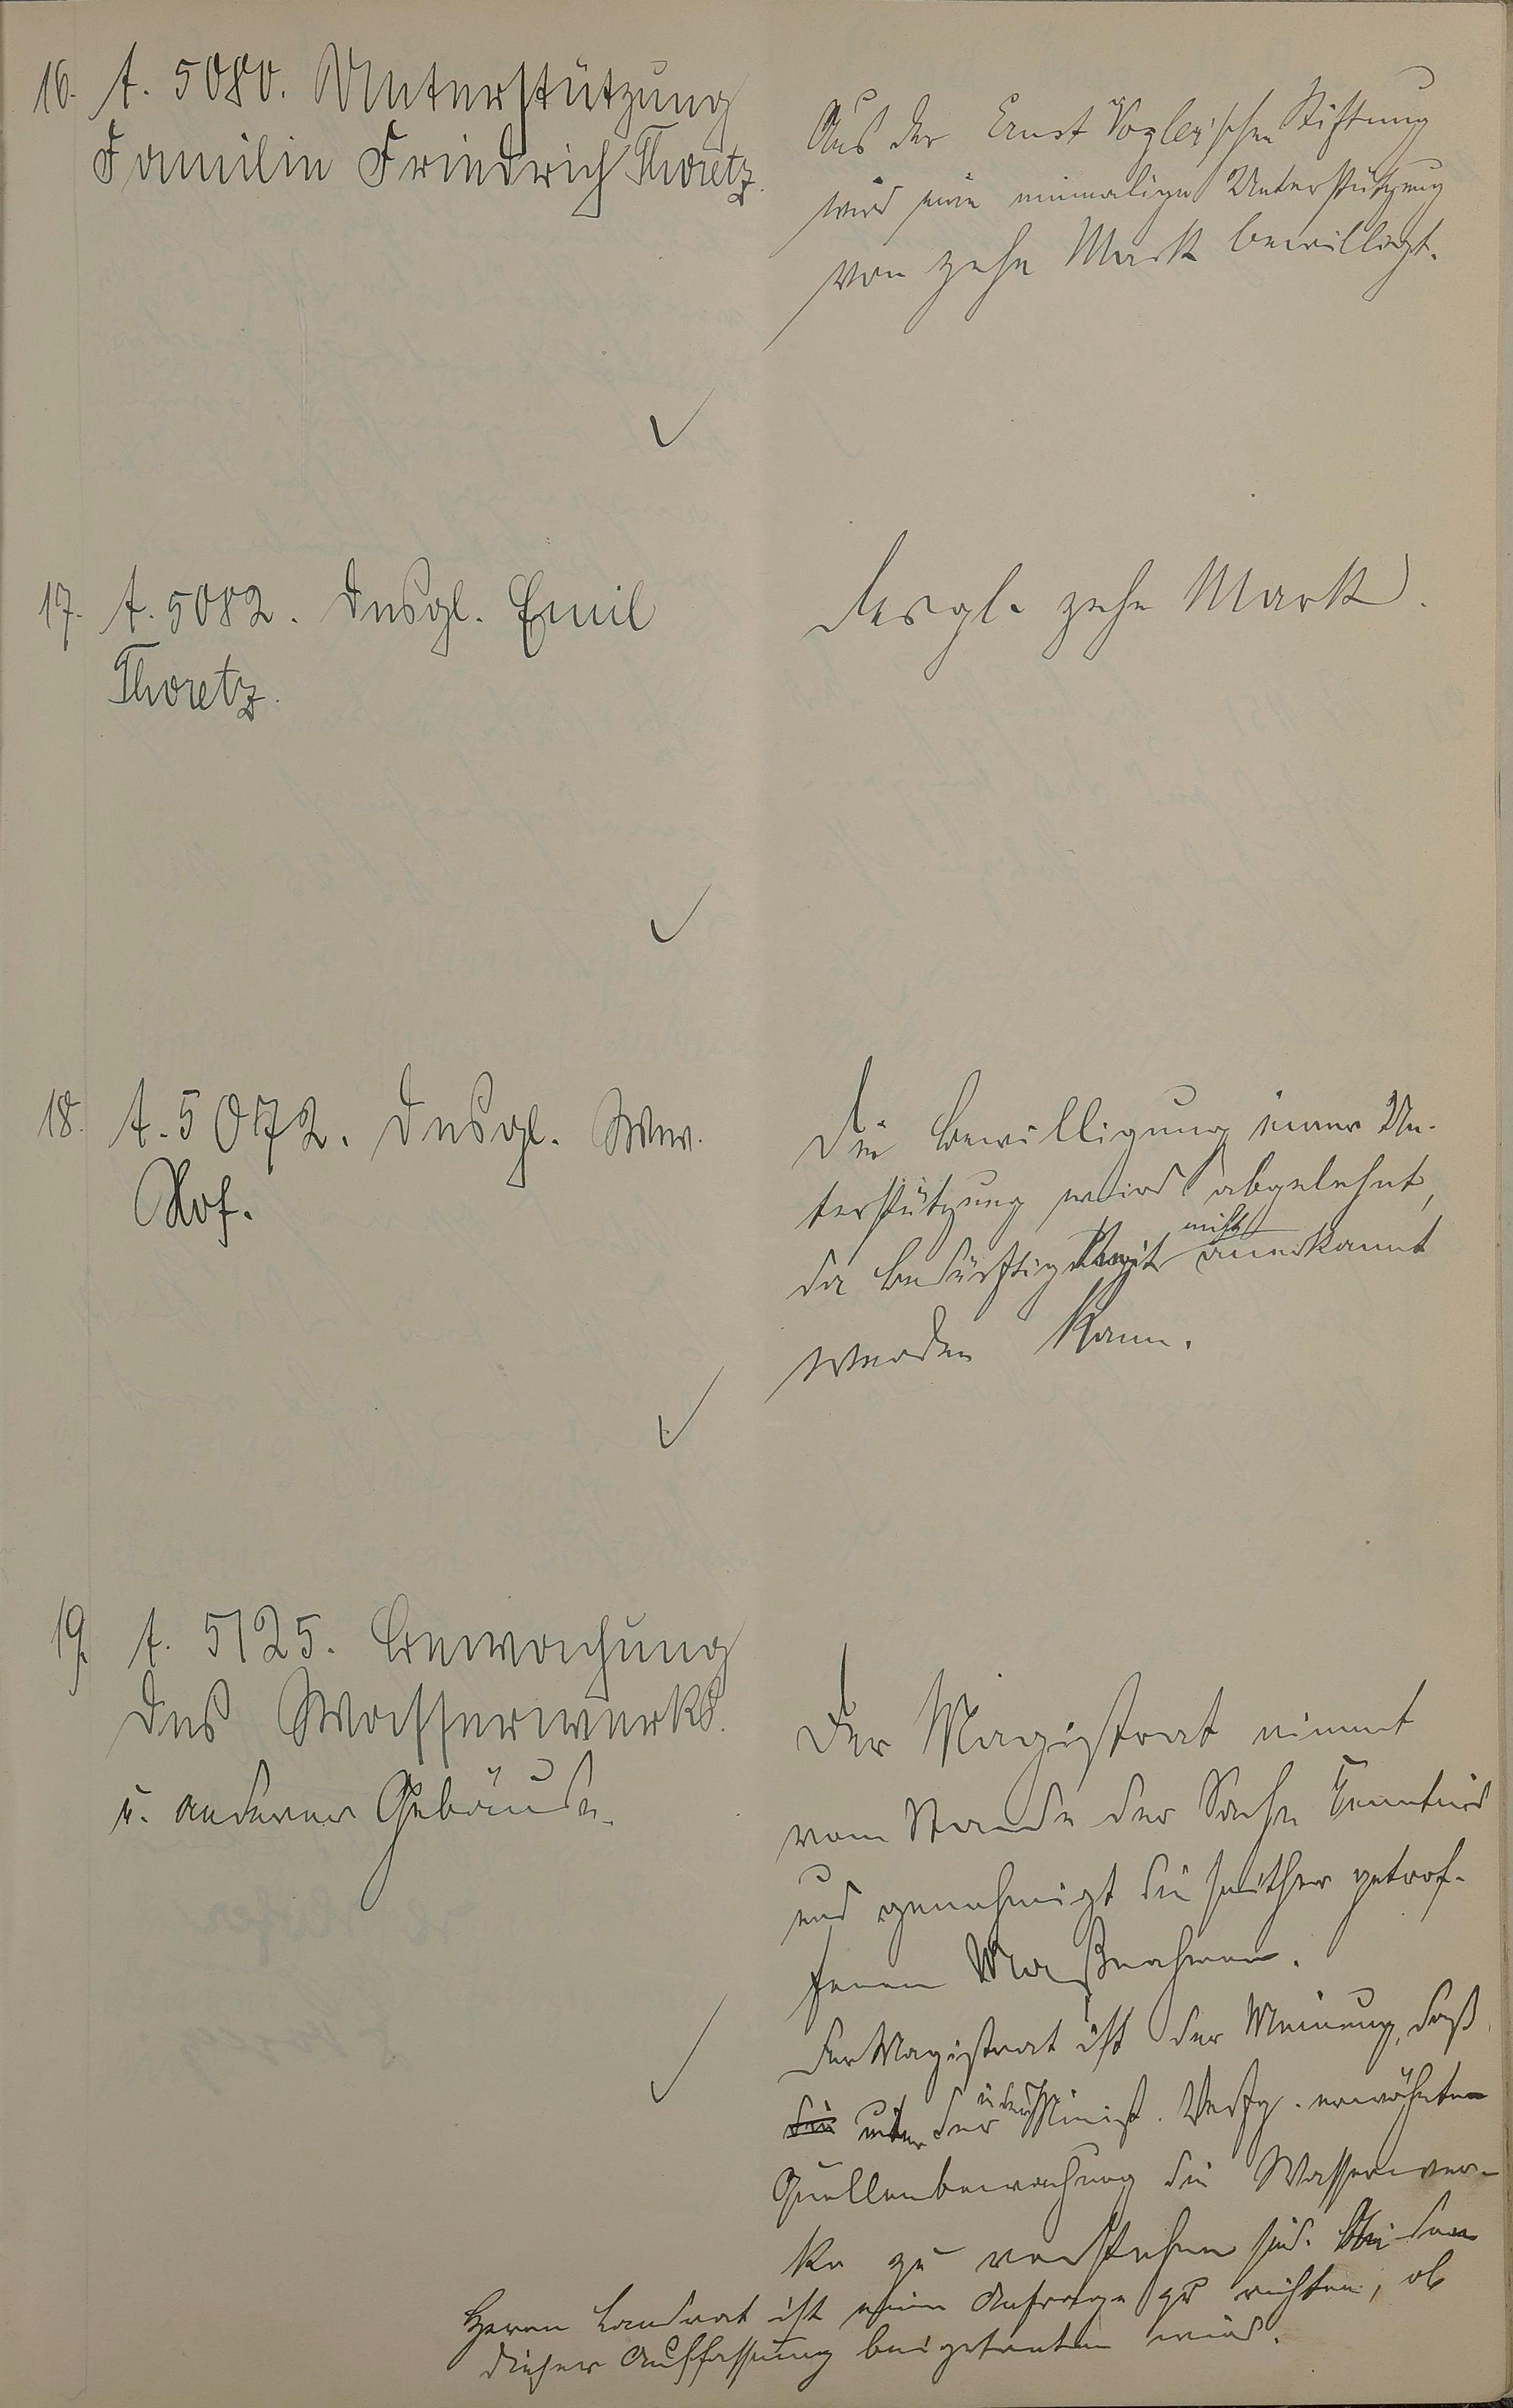 16. A. 5080. Unterstützung
Familie Friedrich Thoretz.
Aus der Ernst Vogler'schen Stiftung
wird eine einmalige Unterstützung
von zehn Mark bewilligt.
17. A. 5082. Desgl. Emil
Thoretz.
desgl. zehn Mark.
18. A. 5072. Desgl. Wwe.
Hof.
Die Bewilligung einer Un-
terstützung wird abgelehnt,
da Bedürftigkeit nicht anerkannt
werden kann.
19. A. 5125. Bewachung
des Wasserwerks
u. anderer Gebäude.
Der Magistrat nimmt
vom Stande der Sache Kenntnis
und genehmigt die seither getrof-
fenen Maßnahmen.
Der Magistrat ist der Meinung, daß
die unter der in der Minist. Verfg. erwähnten
Quellenbewachung die Wasserwer-
ke zu verstehen sind. An den
Herrn Landrat ist eine Anfrage zu richten, ob
dieser Auffassung beigetreten wird.